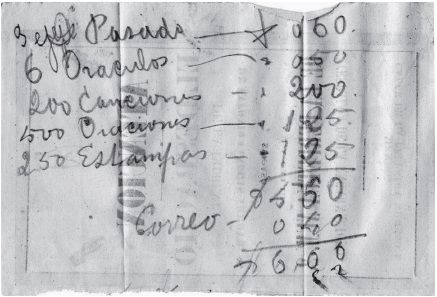 3 eje De Pasado — $ 060
6 Oraculos — " 050
200 Canciones — " 200
500 Oraciones — " 125
250 Estampas — " 125
$ 560
Correo — 0
$ 6